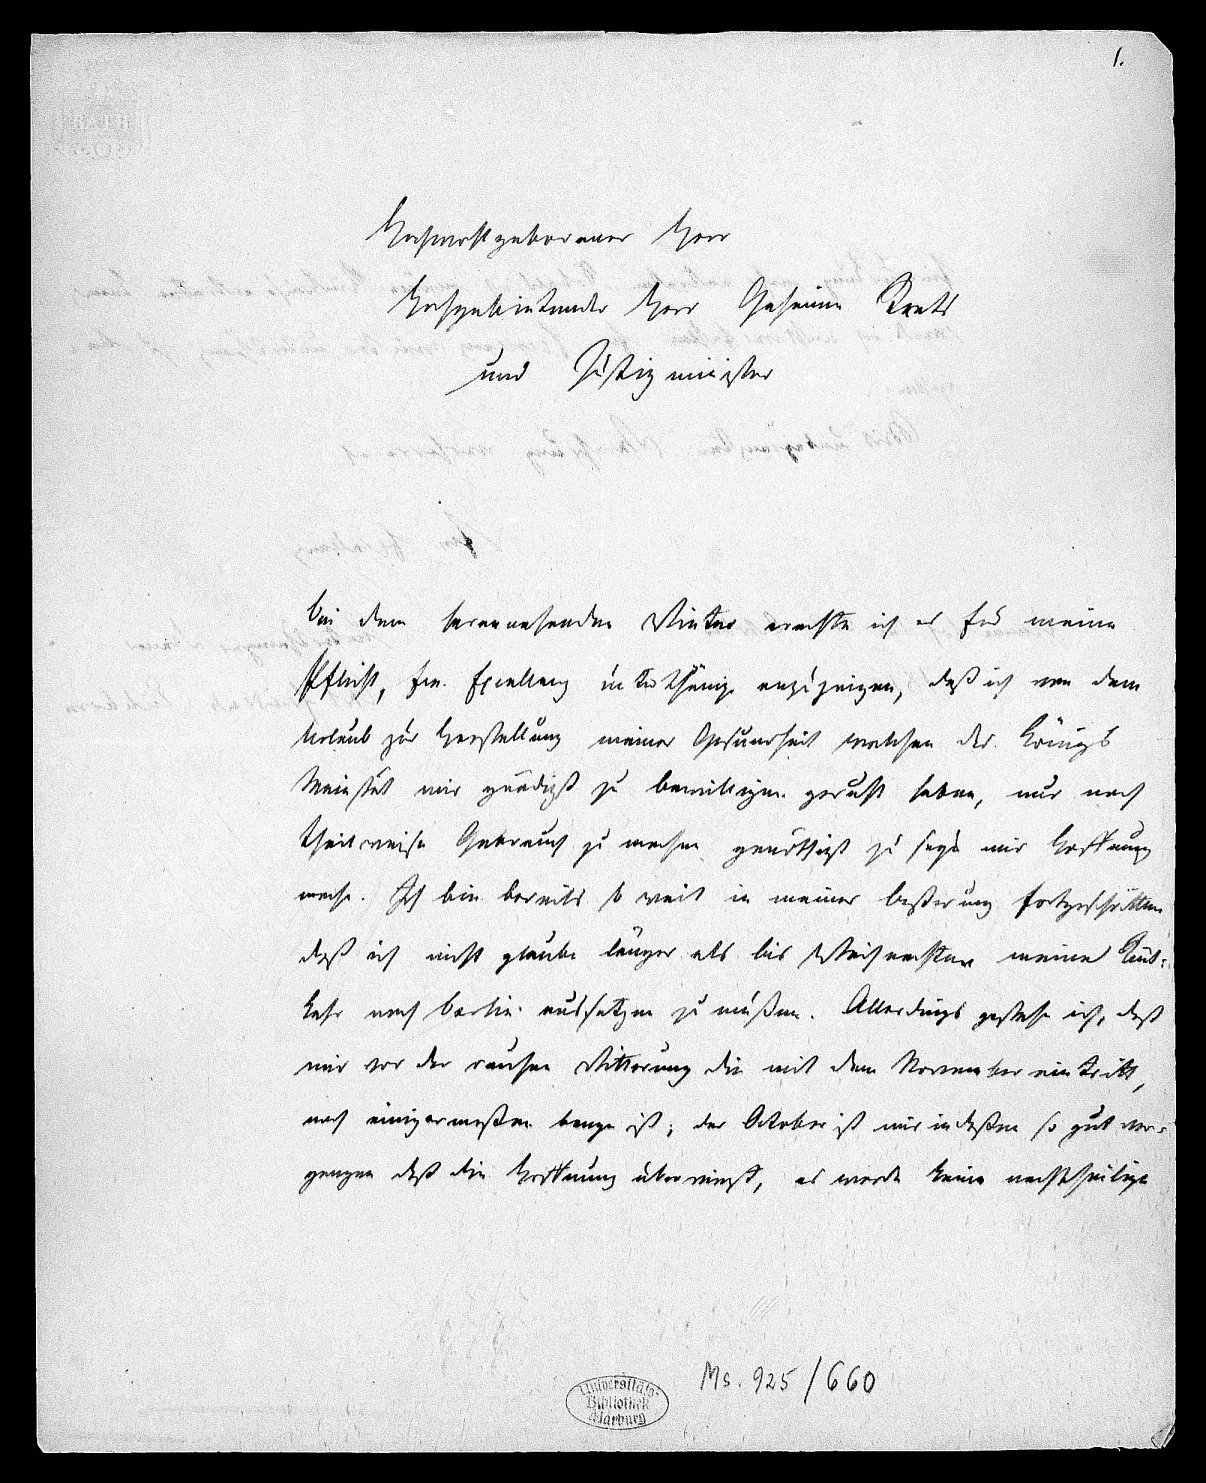 1.
Hochwohlgeborener Herr
Hochgebietender Herr Geheime Staats
und Justizminister
Bei dem herannahenden Winter erachte ich es für meine
Pflicht, Ew. Excellenz anzuzeigen, daß ich von dem
Urlaub zur Herstellung meiner Gesundheit welchen des Königs
Majestät mir gnädigst zu bewilligen geruht haben, nur noch
theilweise Gebrauch zu machen genöthigt zu seyn mir Hoffnung
mache. Ich bin bereits so weit in meiner Beßerung fortgeschritten
daß ich nicht glaube länger als bis Weihnachten meine Rück-
kehr nach Berlin aussetzen zu müßen. Allerdings gestehe ich, daß
mir vor der rauhen Witterung die mit dem November eintritt,
noch einigermaßen bange ist; der October ist mir indeßen so gut ver-
gangen daß die Hoffnung überwiegt, es werde keine nachtheilige
Ms. 925/660
Universitäts-
Bibliothek
Marburg